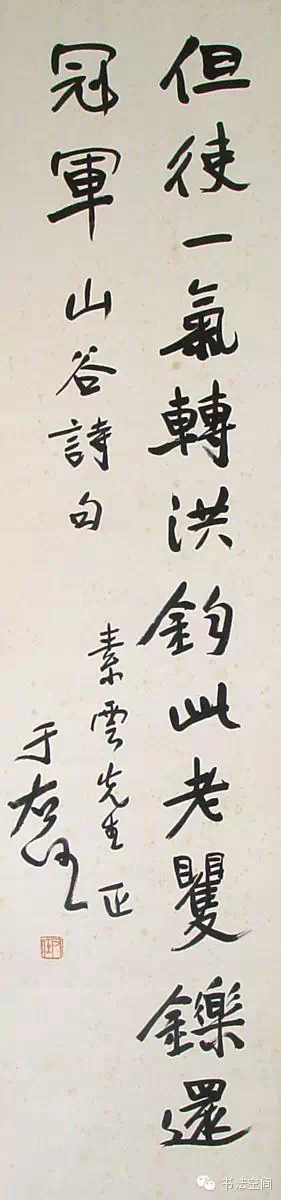 但使一氣轉洪鈞此老矍鑠還
冠軍山谷詩句
素雲先生正
于右任
书法空间